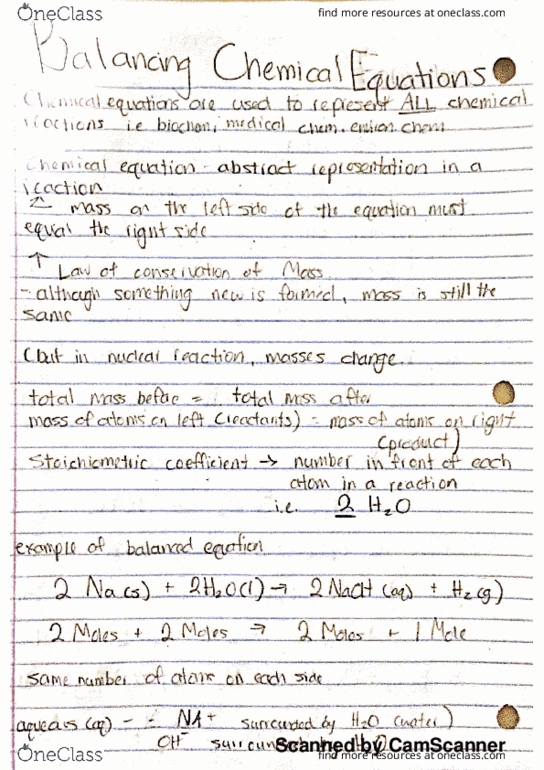 OneClass
find more resources at oneclass.com
Balancing Chemical Equations
Chemical equations are used to represent ALL chemical
reactions i.e biochem, medical chem. chem
Chemical equation - abstract representation in a
reaction
↑ mass on the left side of the equation must
equal the right side
↑ Law of conservation of Mass
- although something new is formed, mass is still the
same
(but in nuclear reaction, masses change.
total mass before = total mass after
mass of atoms on left (reactants) = mass of atoms on right
(product)
Stoichiometric coefficient → number in front of each
atom in a reaction
i.e. 2 H₂O
example of balanced equation
2 Na (s) + 2H₂O(l) → 2 NaOH (aq) + H₂ (g)
2 Moles + 2 Moles → 2 Moles + 1 Mole
same number of atoms on each side
aqueous (aq) - = NA+ surrounded by H₂O (water)
OH⁻
Scanned by CamScanner
OneClass
find more resources at oneclass.com